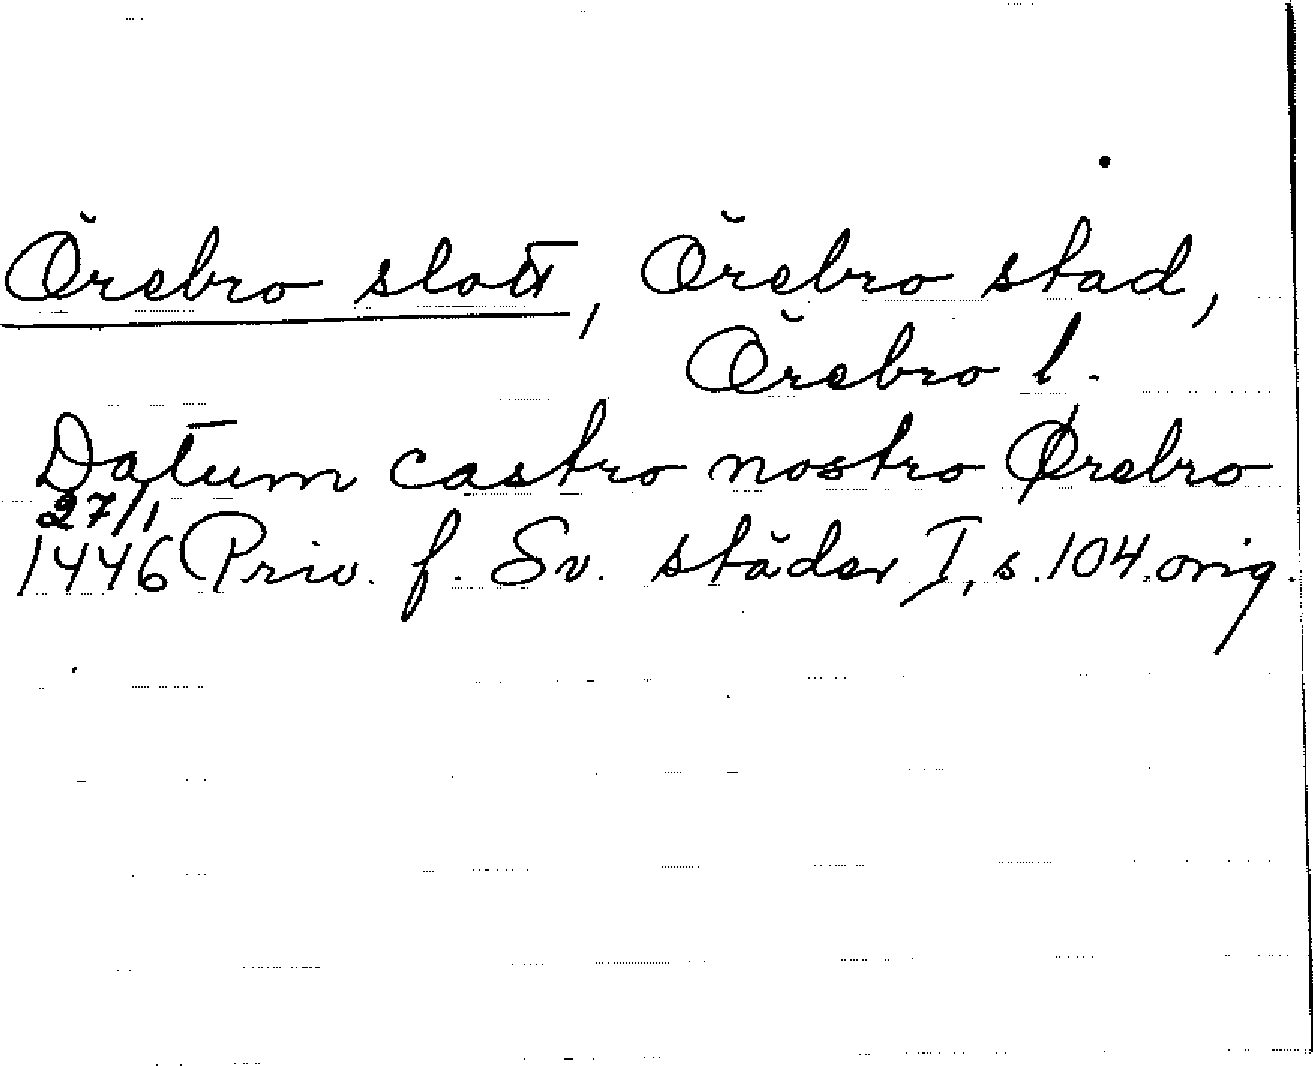 Örebro slott, Örebro stad,
Örebro l.
Datum castro nostro Ørebro
27/1
1446 Priv. f. Sv. städer I, s. 104. orig.